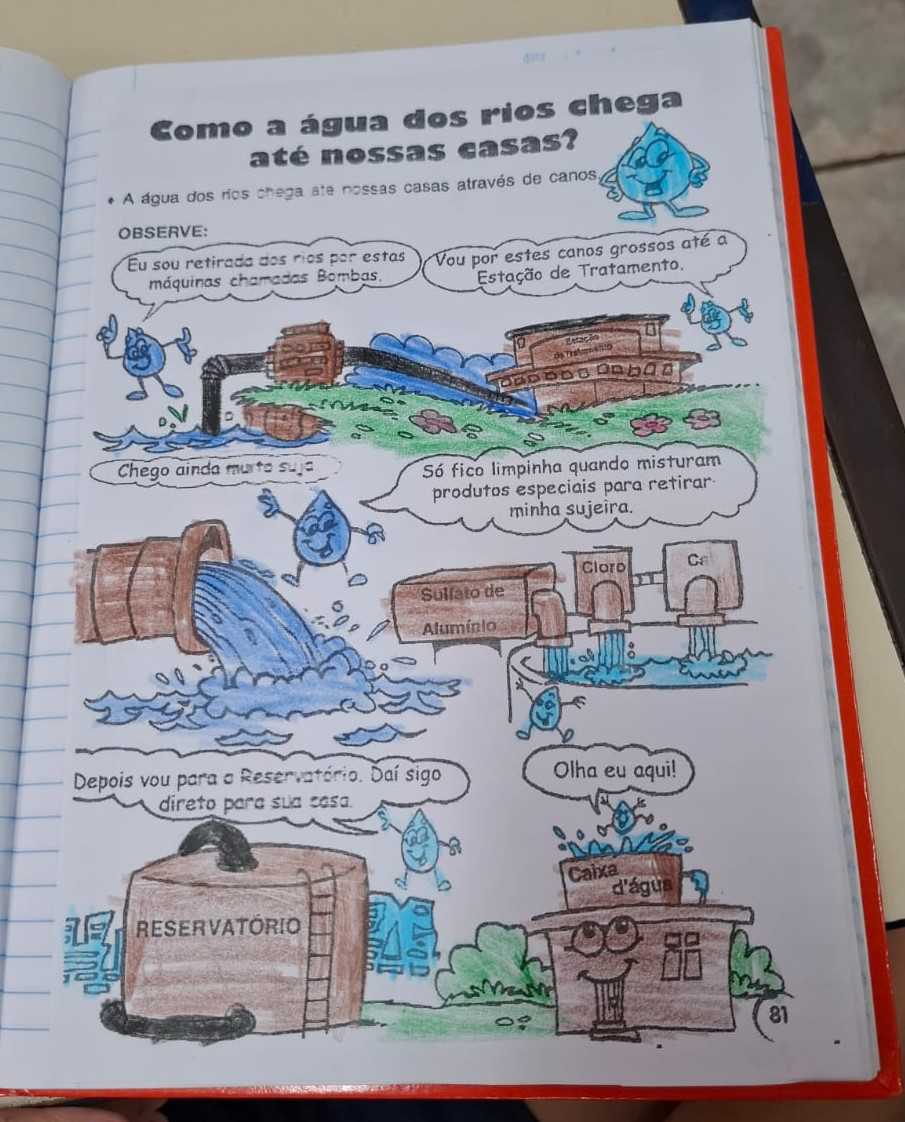 Como a água dos rios chega
até nossas casas?
• A água dos rios chega até nossas casas através de canos.
OBSERVE:
Eu sou retirada dos rios por estas
máquinas chamadas Bombas.
Vou por estes canos grossos até a
Estação de Tratamento.
Estação
de Tratamento
Chego ainda muito suja
Só fico limpinha quando misturam
produtos especiais para retirar
minha sujeira.
Sulfato de
Alumínio
Cloro
Depois vou para o Reservatório. Daí sigo
direto para sua casa.
Olha eu aqui!
RESERVATÓRIO
Caixa
d'água
81